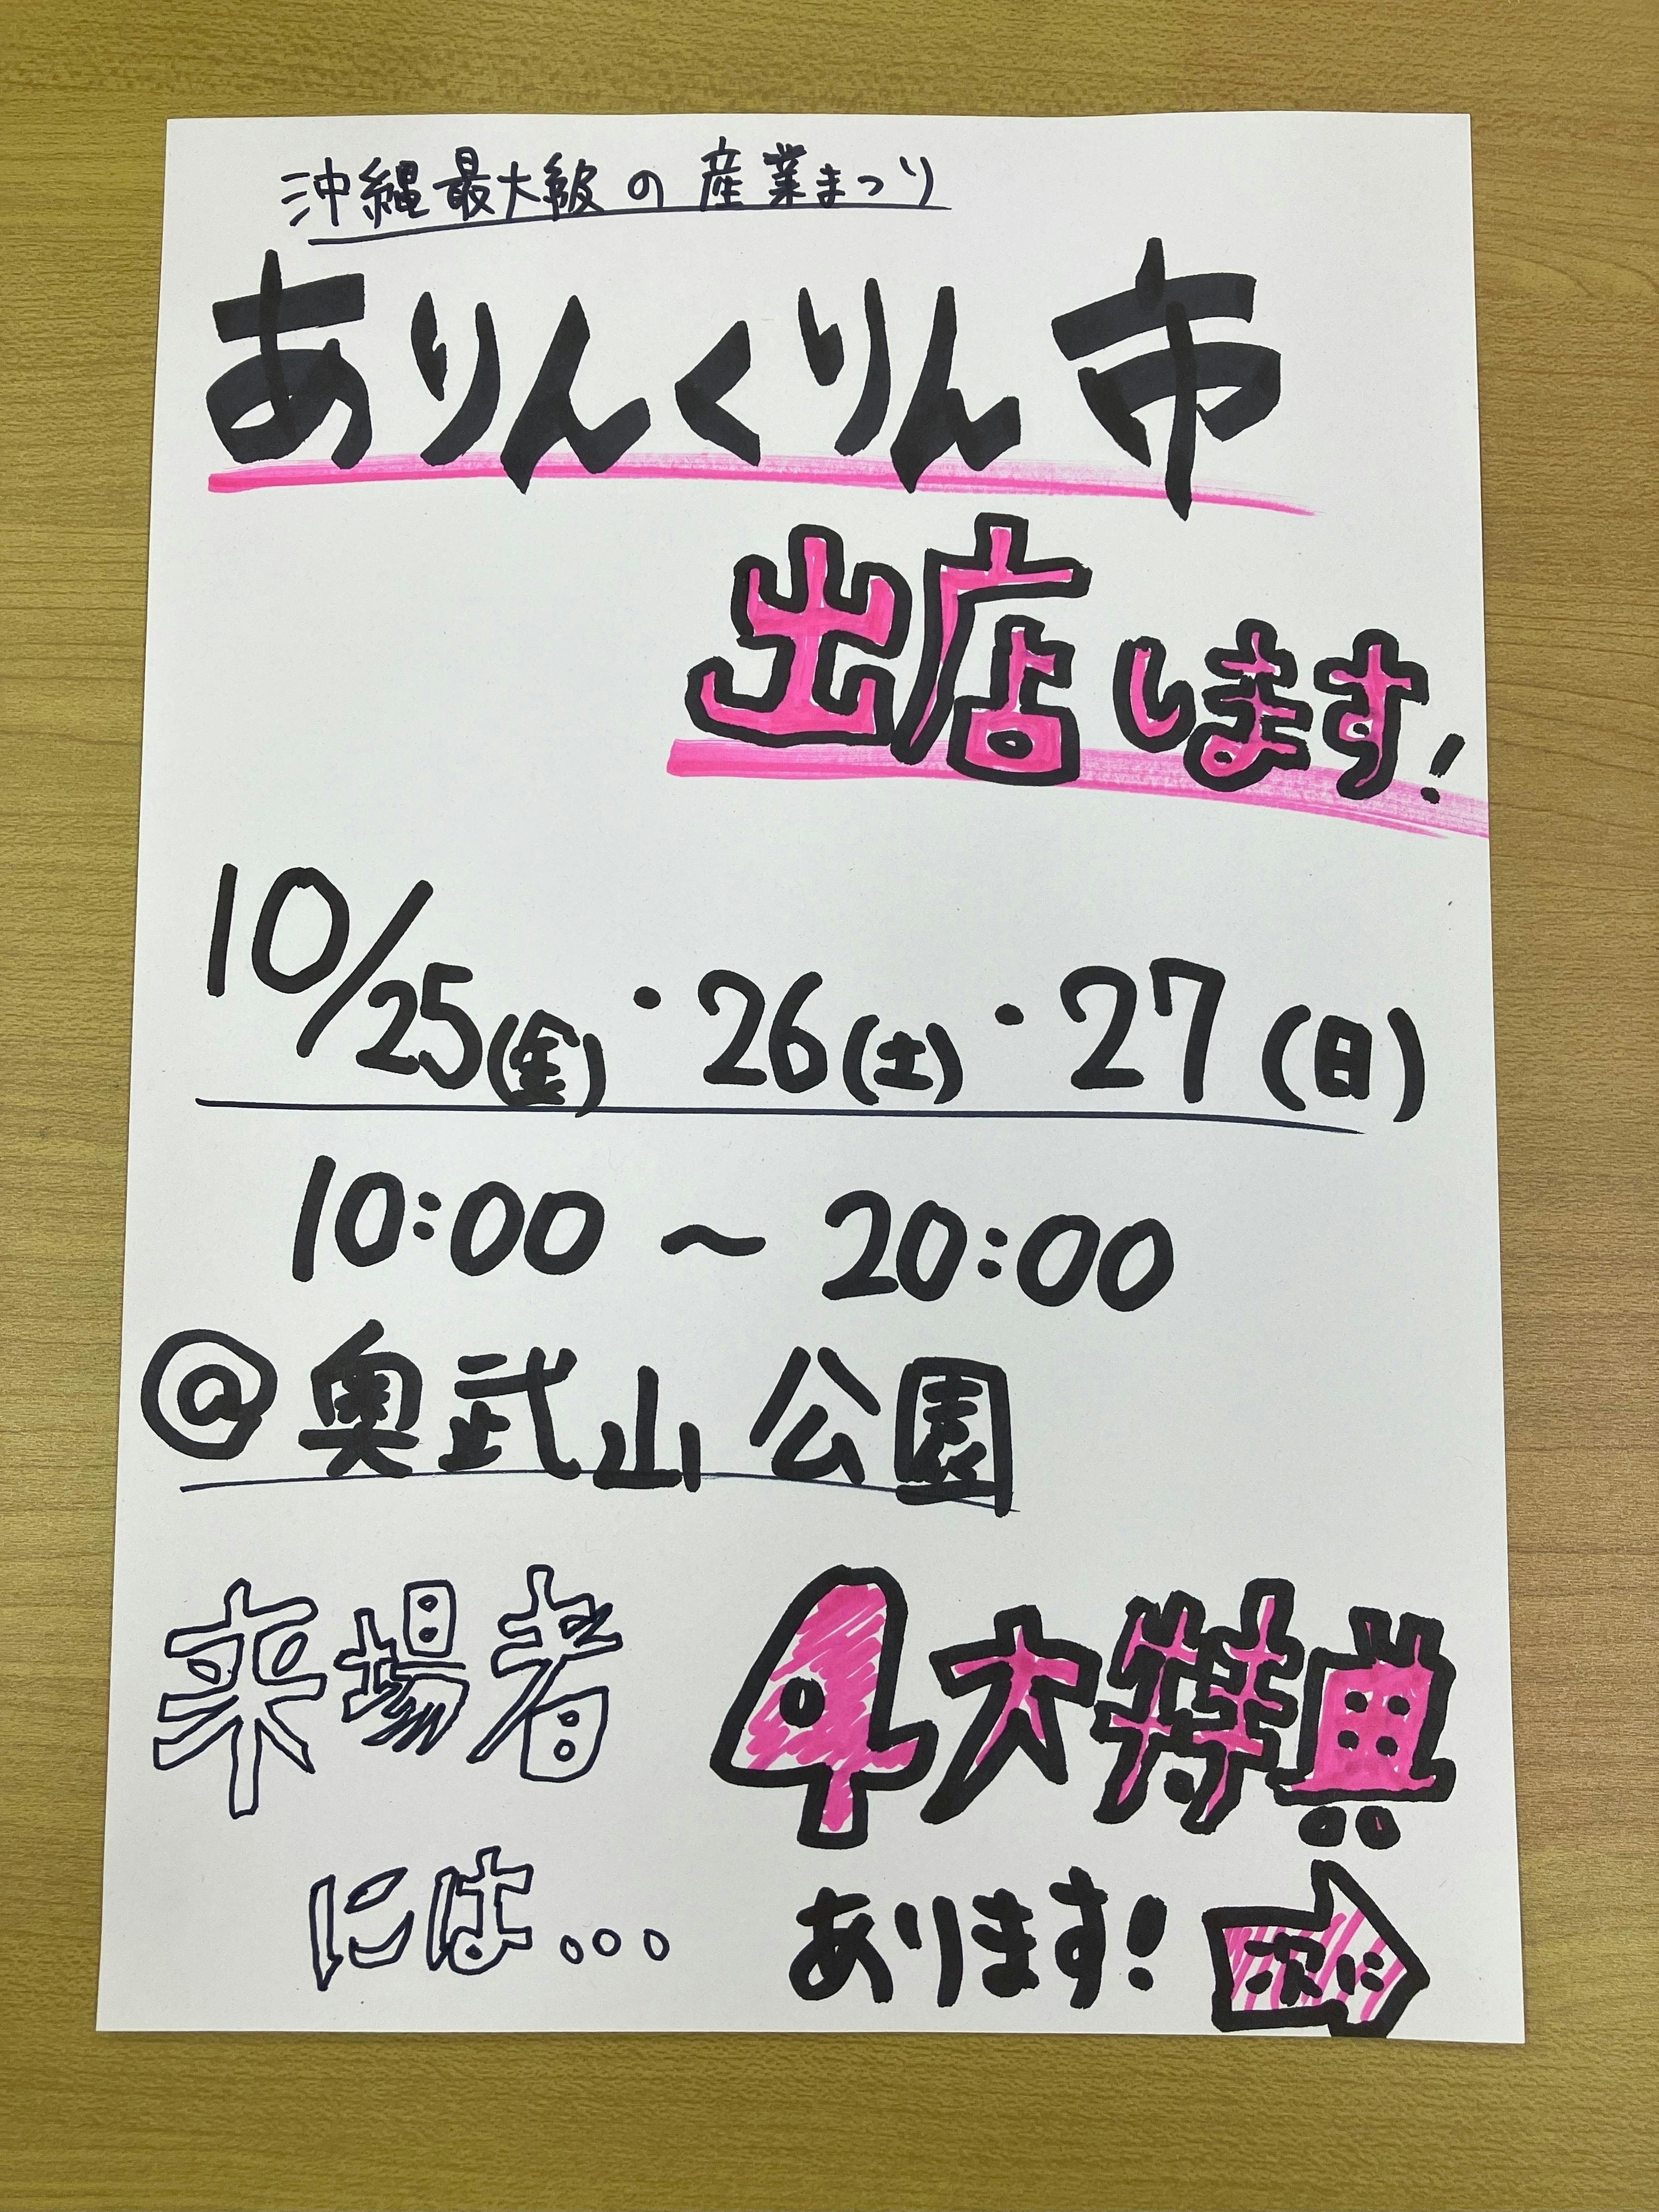 沖縄最大級の産業まつり
ありんくりん市
出店します!
10/25(金)・26(土)・27(日)
10:00〜20:00
@奥武山公園
来場者
には...
4大特典
あります!
次に